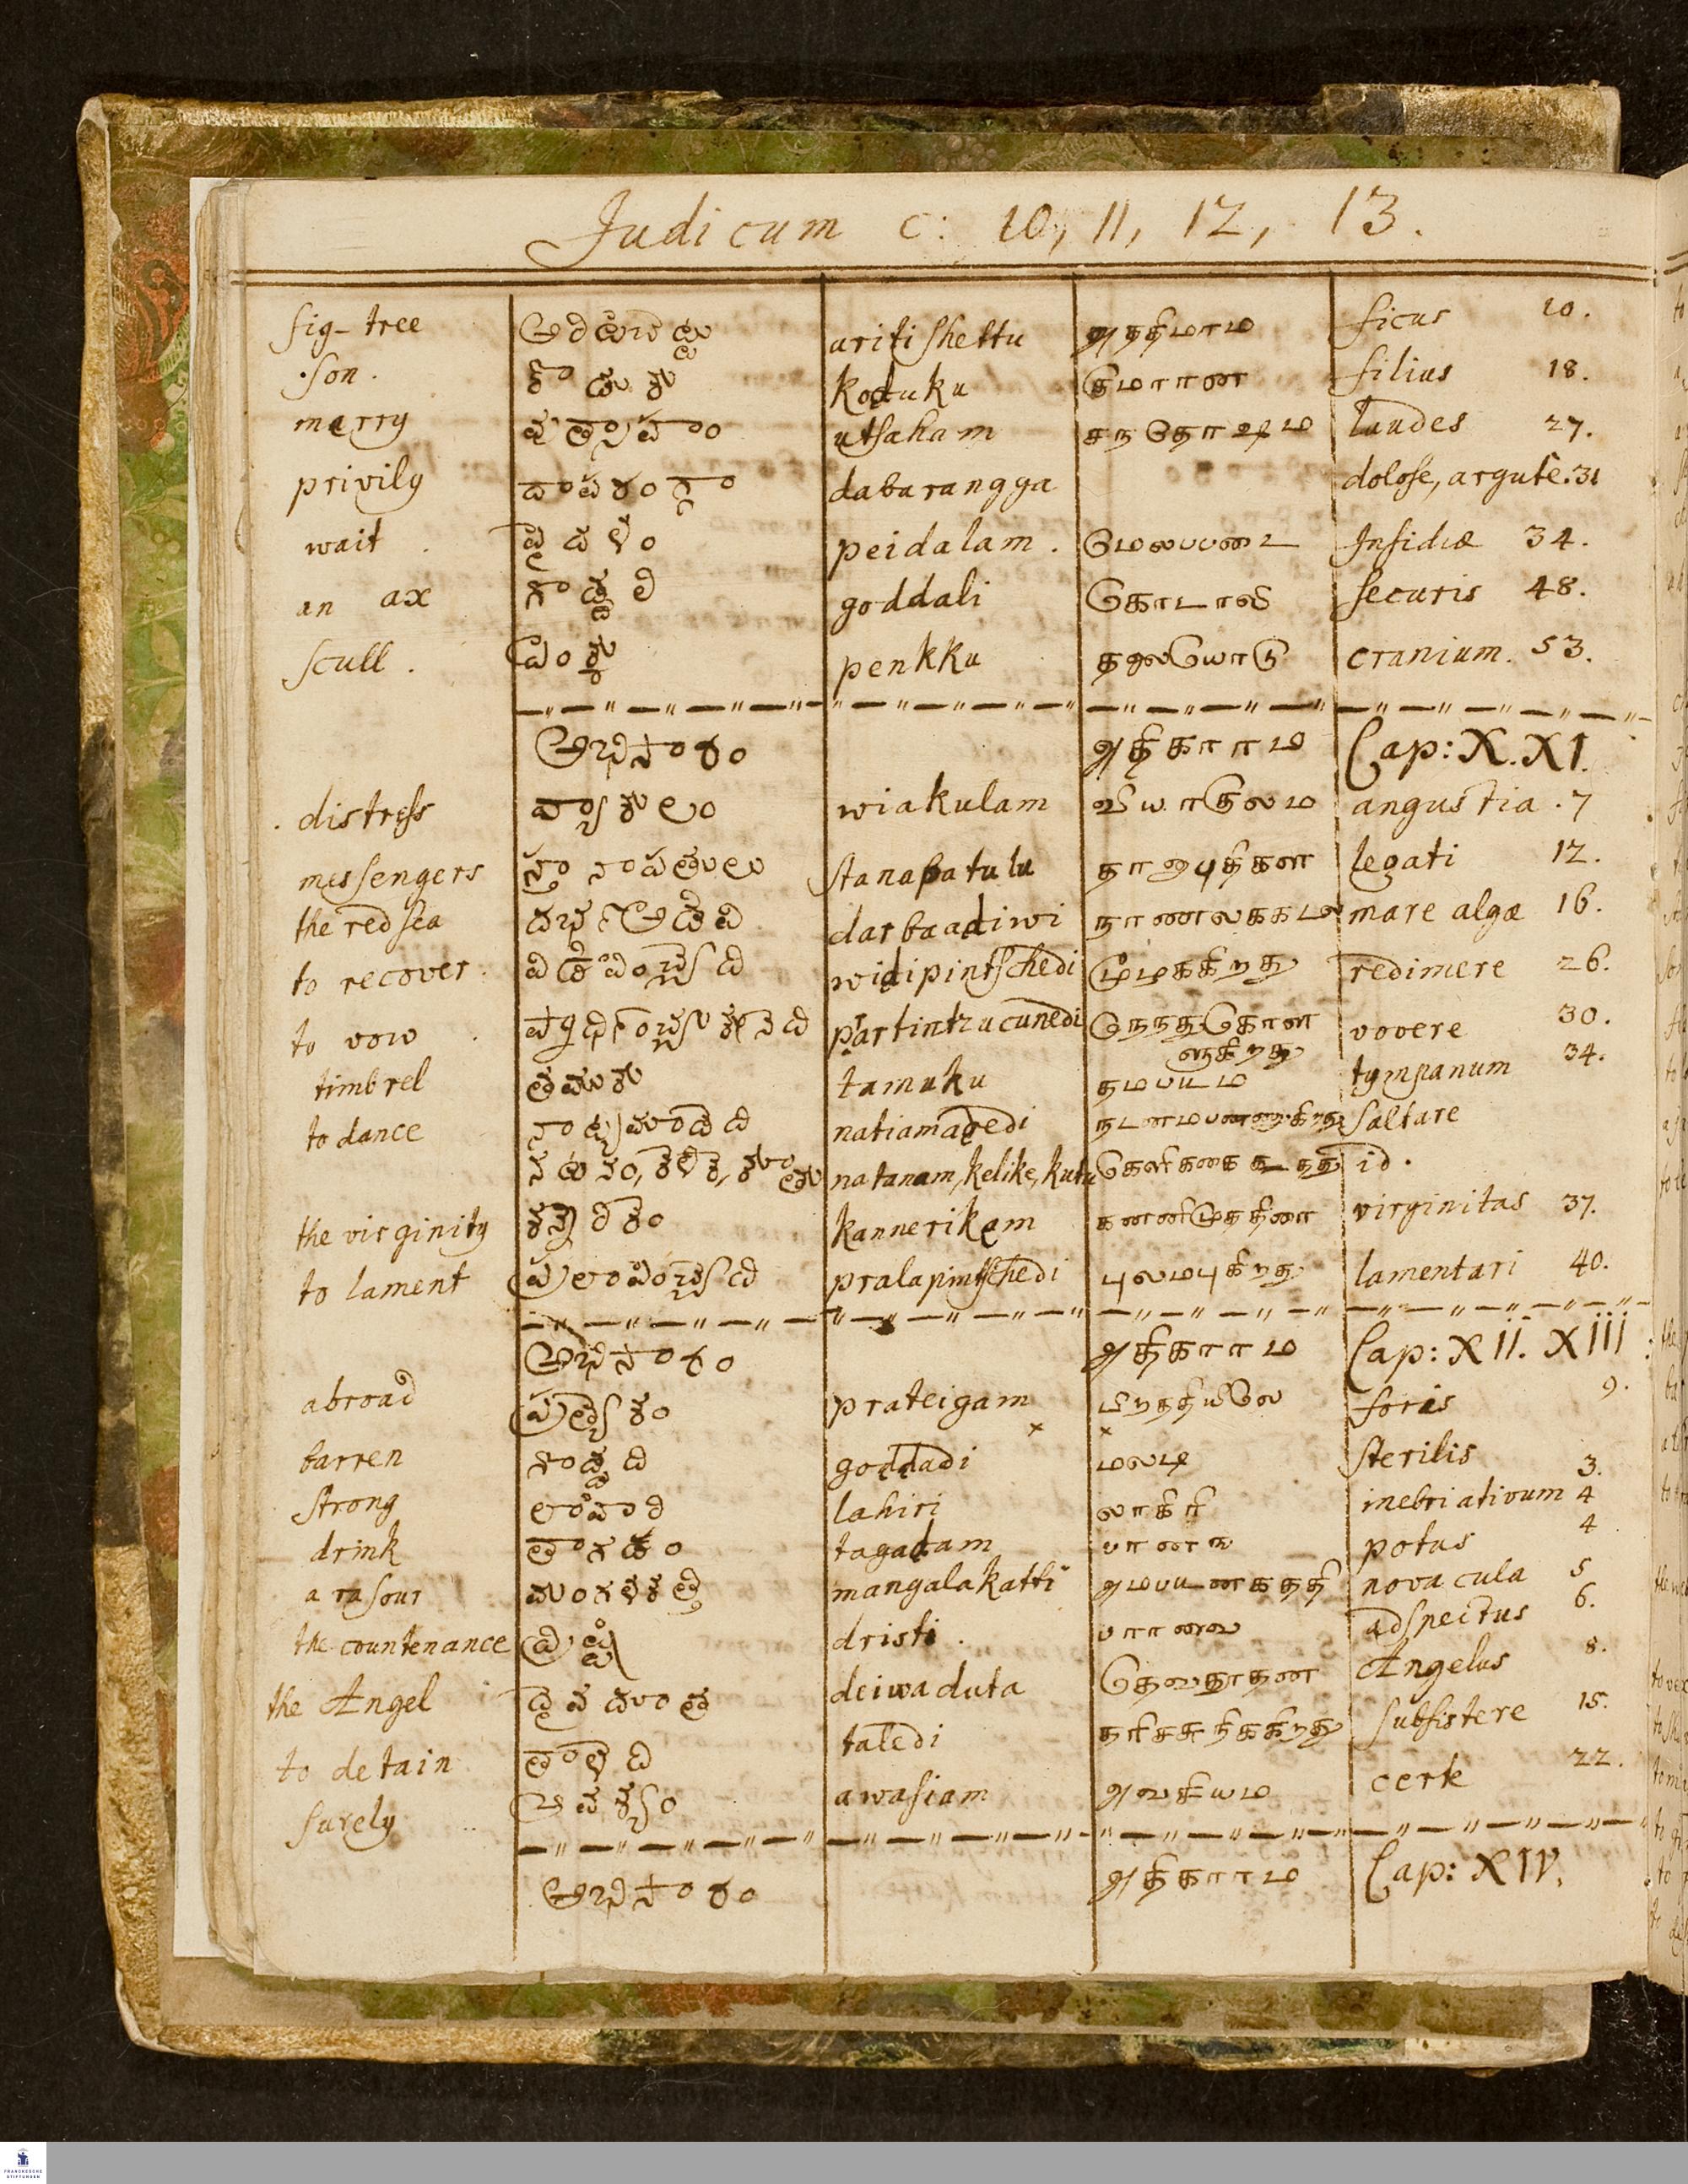 Judicum c: 10, 11, 12, 13.
fig-tree అరిటిచెట్టు aritishettu அத்திமரம ficus 10.
son. కొడుకు koduku குமாரன filius 18.
merry ఉత్సాహం utsaham சந்தோஷம laudes 27.
privily dabarangga dolose, argutè. 31
wait పైదళం peidalam. மேலப்படை Insidiæ 34.
an ax గొడ్డలి goddali கோடாலி securis 48.
scull. పెంక్కు penkku தலையோடு cranium. 53.
అధికారం அதிகாரம Cap: X. XI.
distress వ్యాకులం wiakulam வியாகுலம angustia. 7
messengers స్తానాపతులు stanapatulu தானாபதிகள legati 12.
the red sea దర్భఆడివి darbaadiwi நாணலக்கடல mare algæ 16.
to recover. విడిపించ్చేది widipintschedi மீழக்கிறது redimere 26.
to vow partintzucunedi நேந்துகொள vovere 30.
ளுகிறது
timbrel తముకు tamuku தம்பட்டம tympanum 34.
to dance నాట్యమాడేది natiamadedi நடனமபண்ணுகிறது saltare
నటనం, కేళికె, కూతు natanam, kelike, kutu கேளிக்கை கூத்து id.
the virginity కన్నెరికం kannerikem virginitas 37.
to lament ప్రలాపించ్చేది pralapintschedi புலம்புகிறது lamentari 40.
అధికారం அதிகாரம Cap: XII. XIII
abroad ప్రత్యేకం prateigam foris 9.
barren గొడ్డది goddadi மலடி sterilis 3.
strong లాహిరి lahiri லாகிரி inebriativum 4
drink తాగడం tagadam பானம potus 4
a rasour మంగళకత్తి mangalakatti அம்பட்டனகத்தி novacula 5
the countenance ద్రిష్టి dristi. பார்வை adspectus 6.
the Angel దైవదూత deiwaduta தேவதூதன Angelus 8.
to detain తాళేది taledi தரிச்சுநிக்கிறது subsistere 15.
surely అవశ్యం awasiam அவசியம certe 22.
అధికారం அதிகாரம Cap: XIV.
FRANCKESCHE
STIFTUNGEN